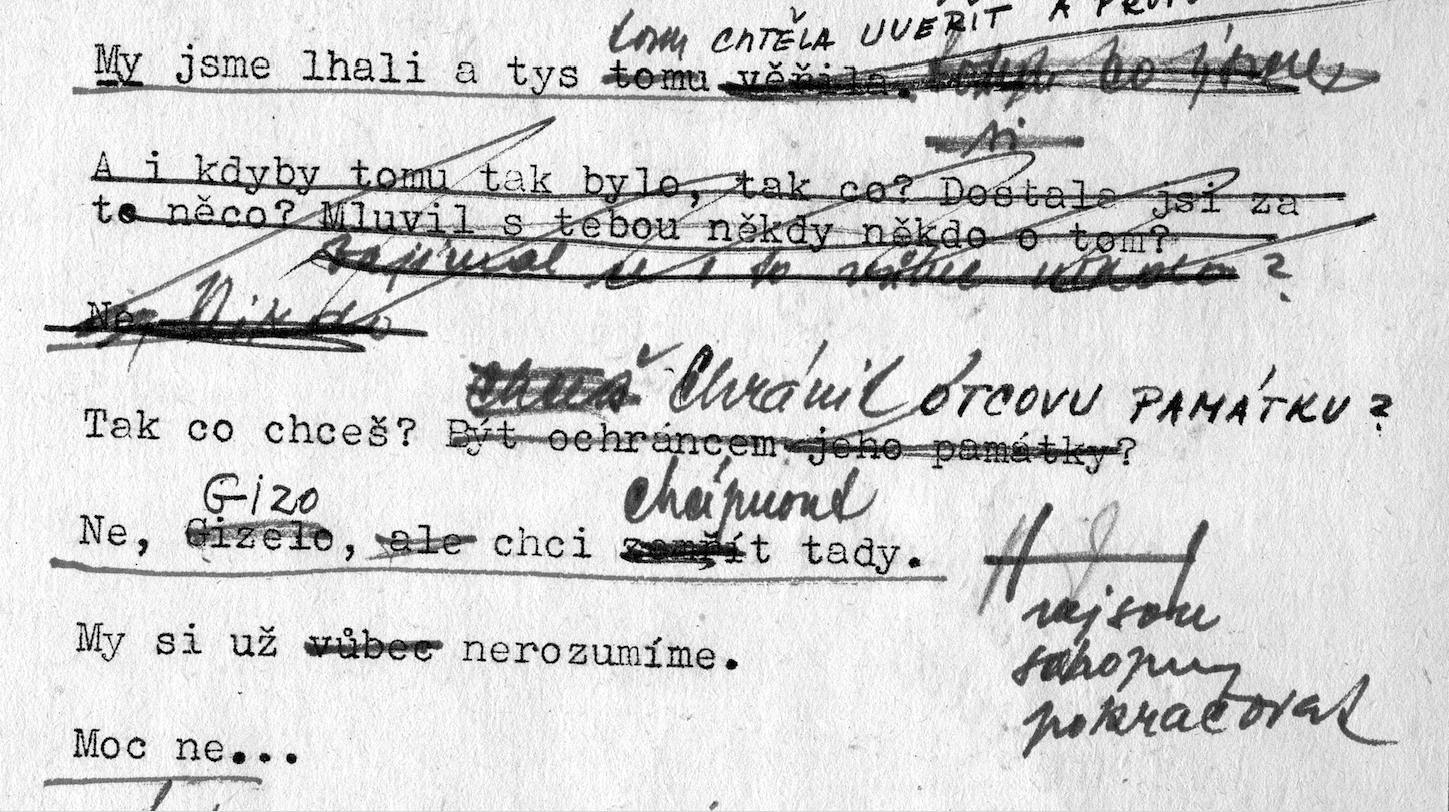 tomu CHTĚLA UVĚŘIT A
My jsme lhali a tys tomu věřila. co
si
A i kdyby tomu tak bylo, tak co? Dostala jsi za
to něco? Mluvil s tebou někdy někdo o tom?
zajímal se o to vůbec někdo?
Ne, Nikdo
chceš Chránit OTCOVU PAMÁTKU?
Tak co chceš? Být ochráncem jeho památky?
GIZO chcípnout
Ne, Gizelo, ale chci zemřít tady.
nejsou
schopny
My si už vůbec nerozumíme.
pokračovat
Moc ne...